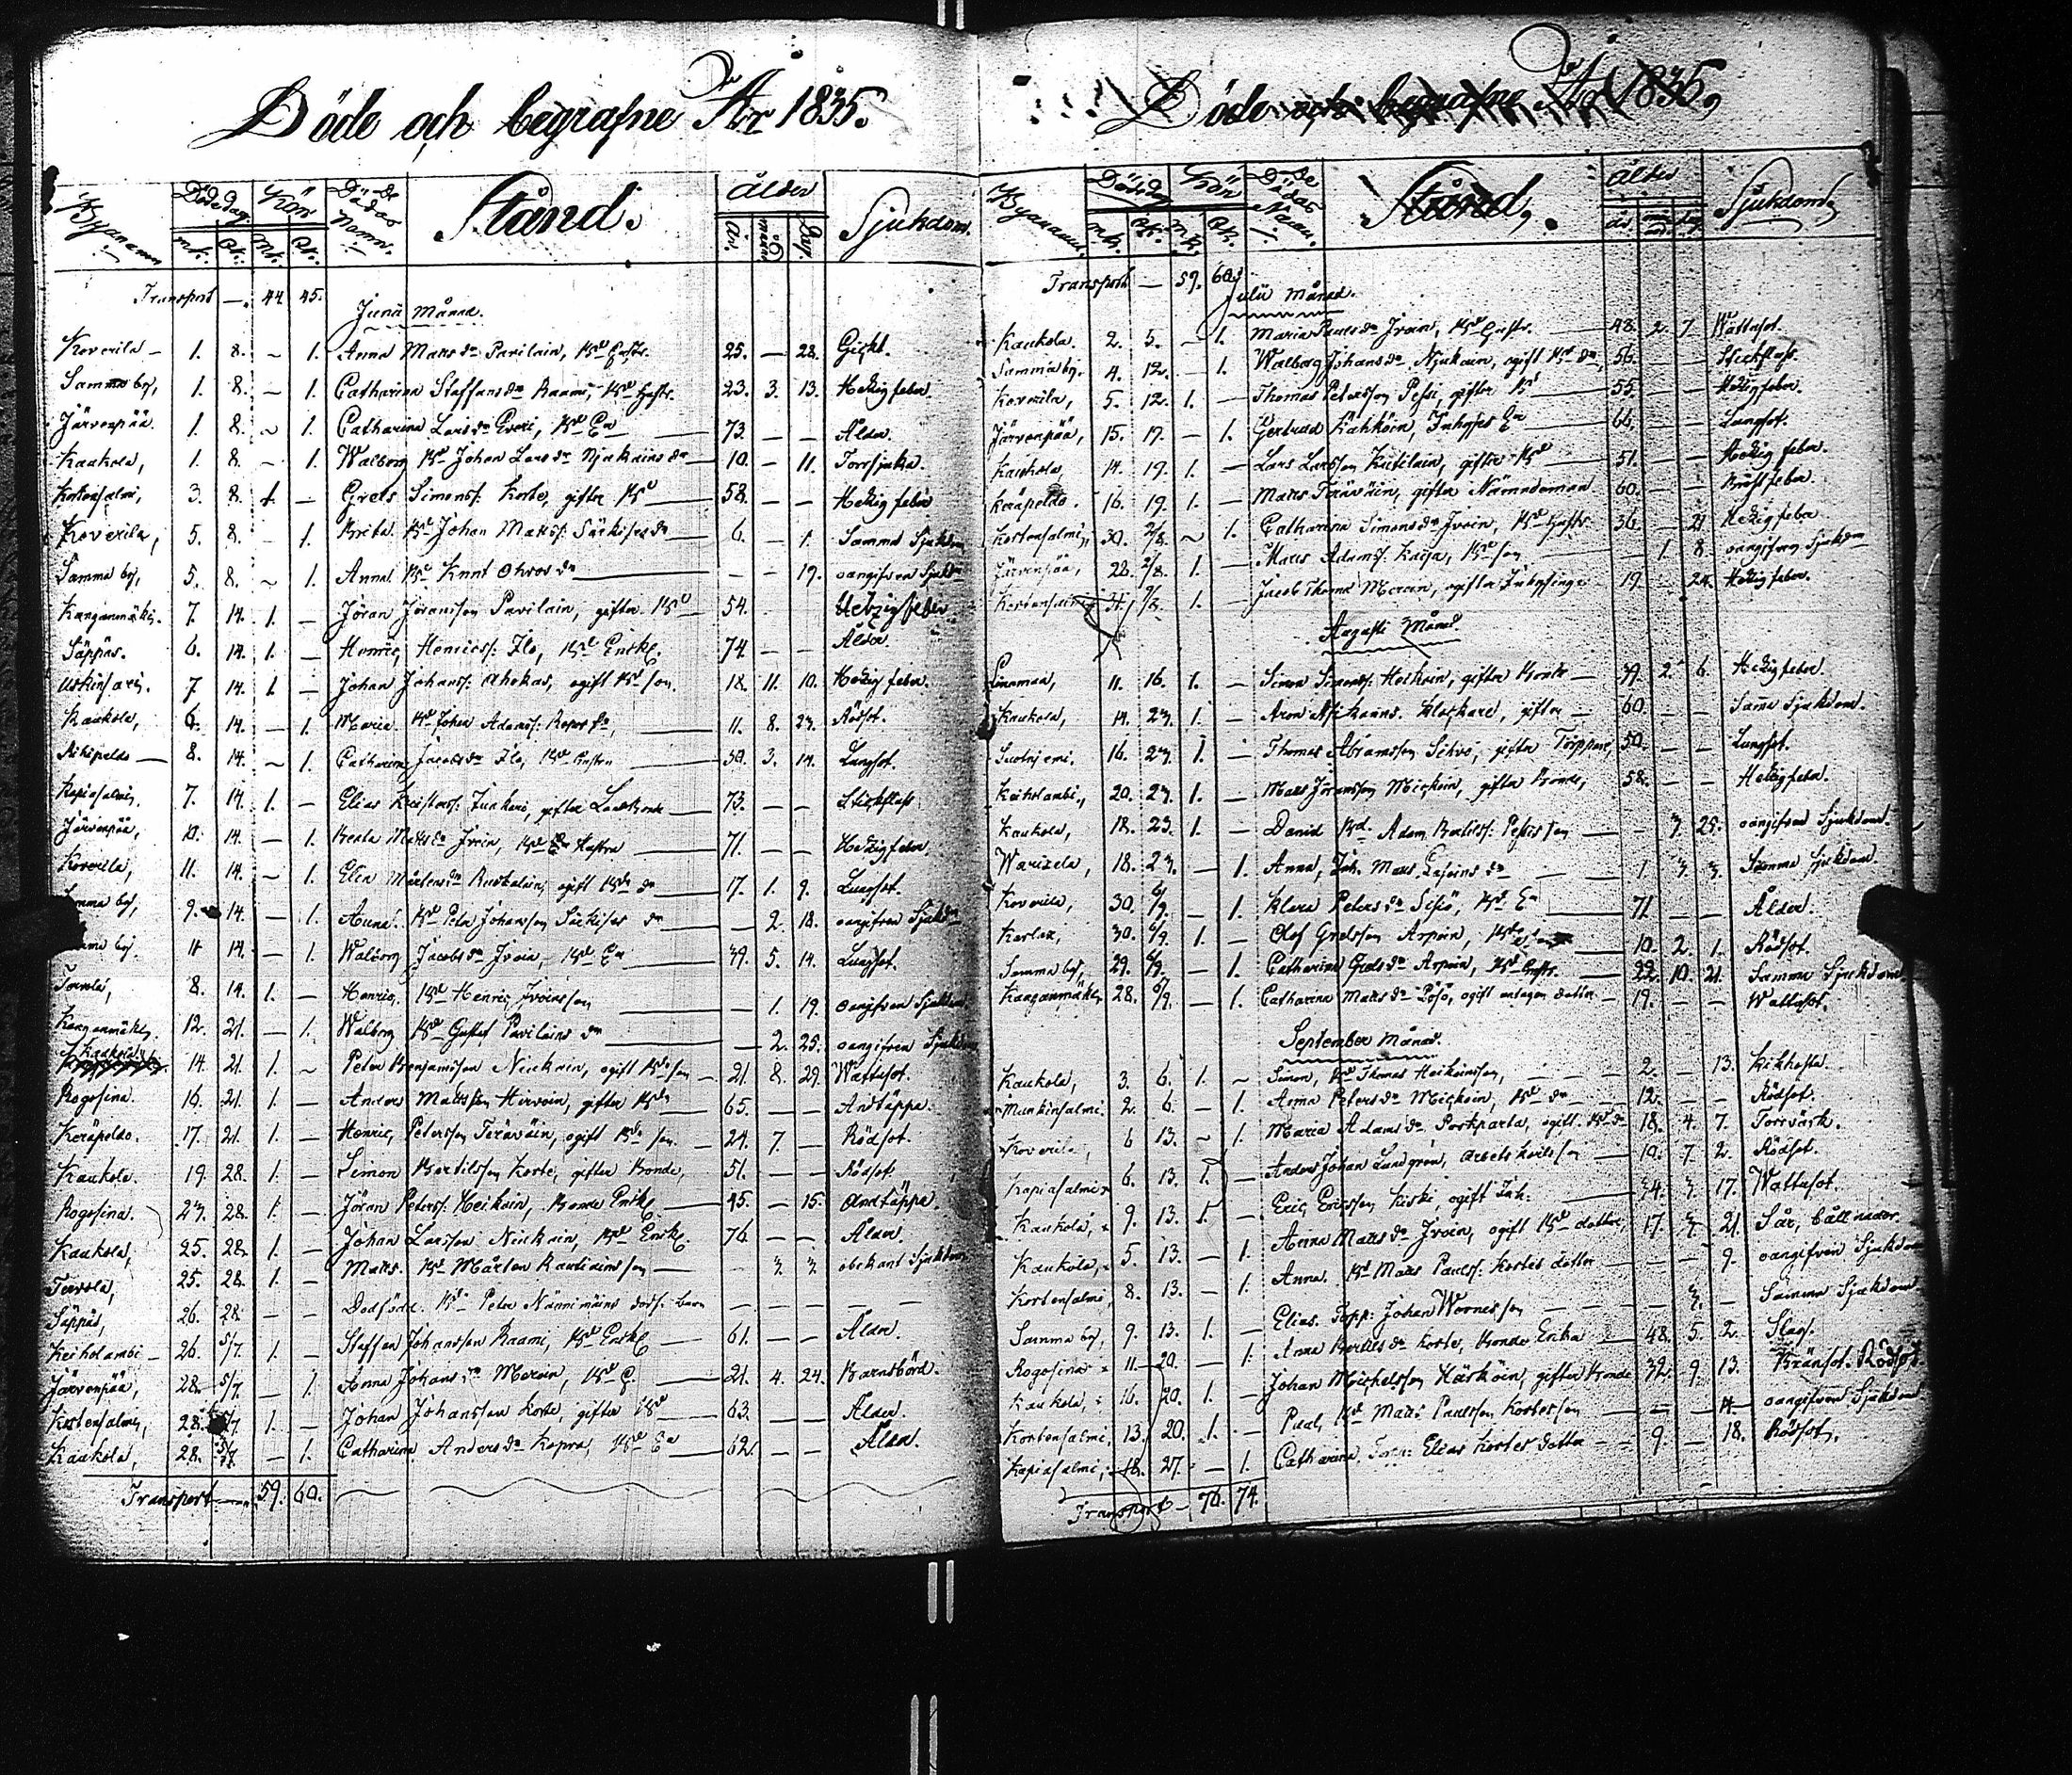 Döde och begrafne År 1835.
Bynamn Dödedag Kön Döde Dödas Namn. Stånd. ålder Sjukdom.
mt. qt. Mt. Qt. år. Dag.
Transport —. 44 45.
Junii Månad.
Koverila — 1. 8. ~ 1. Anna Matts dr Pavilain, Bd Hustr. 25. — 28. Gickt.
Samma by, 1. 8. — 1. Catharina Staffans dr Raami, Bd Hustr. 23. 3. 13. Hetzig feber
Järvenpää. 1. 8. ~ 1. Catharina Lars dr Bd Ea 73. — — Ålder.
Kaukola, 1. 8. — 1. Walborg Bd Johan Lars dr Njukains dr 10. — 11. Torrsjuka.
Kortensalmi, 3. 8. 1. — Grels Simonss. Korte, gifter Bd 58. — — Hetzig feber
Koverila, 5. 8. — 1. Brita. Bd Johan Matss. Särkises dr 6. — 1. Samma Sjukdom
Samma by, 5. 8. ~ 1. Anna. Bd Knut Ohvos dr — — 19. oangifven Sjukd
Kanganmäki. 7. 14. 1. — Jöran Jöransson Pavilain, gifter Bd 54. Hetzigfeber
Säppäs. 6. 14. 1. — Henric Henricss. Ilo, Bd Enkl. 74. — — Ålder.
7. 14. 1. — Johan Johanss. Ahokas, ogift Bd son. 18. 11. 10. Hetzig feber.
Kaukola, 6. 14. — 1. Maria Bd Johan Adamss. dr, 11. 8. 23. Rödsot.
8. 14. ~ 1. Catharina Jacobs dr Ilo, Bd Hustru 3. 14. Lungsot.
Kapiasalmi. 7. 14. 1. — Elias Kristerss. Junkari, gifter 73. — — Stickfluss
Järvenpää, 10. 14. — 1. Beata Matts dr Ivoin, Bd Hustru 71. — — Hetzigfeber.
Koverila, 11. 14. ~ 1. Elin Mårtens dr ogift Bd dr 17. 1. 9. Lungsot.
Samma by, 9. 14. — 1. Anna. Bd Peter Johansson Särkises dr — 2. 18. oangifven Sjukd
Samma by. 11 14. — 1. Walborg Jacobs dr Ivoin, Bd Ea 39. 5. 14. Lungsot.
Tervola, 8. 14. 1. — Henric. Bd Henric Ivoins son — 1. 19. oangifven Sjukdom
Kanganmäki, 12. 21. — 1. Walborg Bd Gustaf Pavilains dr — 2. 25. oangifven Sjukdom
Kaukola 14. 21. 1. ~ Peter Benjamisson Niukain, ogift Bd son — 21. 8. 29. Wattusot.
Rogosina. 16. 21. 1. — Anders Mattsson Hirvoin, gifter Bd 65. — — Andtäppa.
Keräpeldo. 17. 21. 1. — Henric Petersson Teräväin, ogift Bd son. 24. 7. — Rödsot.
Kaukola. 19. 28. 1. — Simon Bertilsson Korte, gifter Bonde, 51. — — Rödsot.
Rogosina. 23. 28. 1. — Jöran Peterss. Heikain, Bonde Enkl. 45. — 15. Andtäppa.
Kaukola, 25. 28. 1. — Johan Larsson Niukain, Bd Enkl. 76. — — Ålder.
Tervola, 25. 28. 1. — Matts. Bd Mårten Rautiains son — 3. 3. obekant Sjukdom
Säppäs, 26. 28. — — Dödfödd. Bd Peter Nännimäins barn — — — —
Keiholambi — 26. 5/7. 1. — Staffan Johansson Raami, Bd Enkl. 61. — — Ålder.
Järvenpää, 28. 5/7. — 1. Anna Johans dr Meroin, Bd E. 21. 4. 24. Barnsbörd.
Kortensalmi, 28. 5/7. 1. — Johan Johansson Korte, gifter Bd 63. — — Ålder.
Kaukola, 28. 5/7. — 1. Catharina Anders dr Kopra, Bd Ea 62. — — Ålder.
Transport —. 59. 60.
Döde och begrafne År 1835,
Bynamn, Dödedag Kön Döde Dödas Namn. Stånd. ålder Sjukdom,
Transport — 59. 60.
Julii Månad.
Kaukola. 2. 5. — 1. Maria Pauls dr Ivoin, Bd Hustr. 48. 2. 7. Wattusot.
Samma by. 4. 12. — 1. Walborg Johans dr Njukain, ogift Bd dr, 56. — — Stickfluss.
Koverila, 5. 12. 1. — Thomas Petersson Pessi, gifter Bd 55. — — Hetzigfeber.
Järvenpää, 15. 19. — 1. Gertrud Kähköin, Inhyses Ea 66. — — Lungsot.
Kaukola. 14. 19. 1. — Lars Larsson Kutilain, gifter Bd 51. — — Hetzig feber.
Keräpeldo. 16. 19. 1. — Matts Teräväin, gifter Nämndeman 60. — — Bröstfeber
Kortensalmi, 30. 2/8. ~ 1. Catharina Simons dr Ivoin, Bd Hustr 36. — 21 Hetzigfeber
Järvenpää, 28. 2/8. 1. — Matts Adamss. Kaija, Bd son — 1. 8. oangifven Sjukdom
Kortensalmi 31. 9/8. 1. — Jacob Thomas Meroin, ogifter Inhysing 19. — 24. Hetzigfeber.
Augusti Månad.
Linamaa, 11. 16. 1. — Simon Simonss. Heikoin, gifter Bonde — 39. 2. 6. Hetzigfeber.
Kaukola, 14. 23. 1. — Aron Klockare, gifter — 60. — — Samma Sjukdom.
16. 23. 1. — Thomas Abramsson Sihvo, gifter Torppare, 50. — — Lungsot.
Keiholambi, 20. 23. 1. — Matts Jöransson Mickoin, gifter Bonde, 58. — — Hetzigfeber.
Kaukola, 18. 23. 1. — David Bd. Adam Bertilss. Pessis son — 3. 25. oangifven Sjukdom.
18. 23. — 1. Anna, Inh. Matts dr 1 3. 3. Samma Sjukdom.
Koverila, 30. 6/9. — 1. Klara Peters dr Bd Ea 71. — — Ålder.
Karlax, 30. 6/9. 1. — Olof Grelsson Arpoin, Bd 10. 2. 1. Rödsot.
Samma by, 29. 6/9. — 1. Catharina Grels dr Arpoin, Bd Hustr. 22. 10. 21. Samma Sjukdom
Kanganmäki, 28. 6/9. — 1. Catharina Matts dr Pösö, ogift antagen dotter — 19. — — Wattusot.
September Månad.
Kaukola, 3. 6. 1. ~ Simon, Bd Thomas Heikoinsson, — 2. — 13. Kikhosta.
2. 6. — 1. Anna Peters dr Mickoin, Bd dr 12. — — Rödsot.
Koverila, 6 13. ~ 1. Maria Adams dr Porkparta, ogift. Bd dr 18. 4. 7. Torrvärk.
Kapiasalmi 6. 13. 1. — Anders Johan Lundgren, arbets karls son — 10. 7 2. Rödsot.
Kaukola, 9. 13. 1. — Eric Ericsson Kiski, ogift Inh. 34. 3. 17. Wattusot.
Kaukola, 5. 13. — 1. Anna Matts dr Ivoin, ogift Bd dotter, 17. 3 21. Sår, bållnader.
Kortensalmi, 8. 13. — 1. Anna. Bd Matts Paulss. Kortes dotter — — 9. oangifven Sjukdom
Samma by, 9. 13. 1. — Elias. Torp: Johan Wornes son — 3. — Samma Sjukdom
Rogosina 11 — 20. — 1. Anna Bertils dr Korte, Bonde Enka 48. 5. 2. Slag.
Kaukola, 16. 20. 1. — Johan Michelsson Härköin, gifter Bonde 32. 9. 13. Rödsot.
Kortensalmi, 13. 20. 1. — Paul, Bd Matts Paulsson Kortes son — — oangifven Sjukdom
Kapiasalmi, 18. 27. — 1. Catharina. Torp: Elias Kortes dotter — 9. — 18. Rödsot.
Transport — 76. 74.